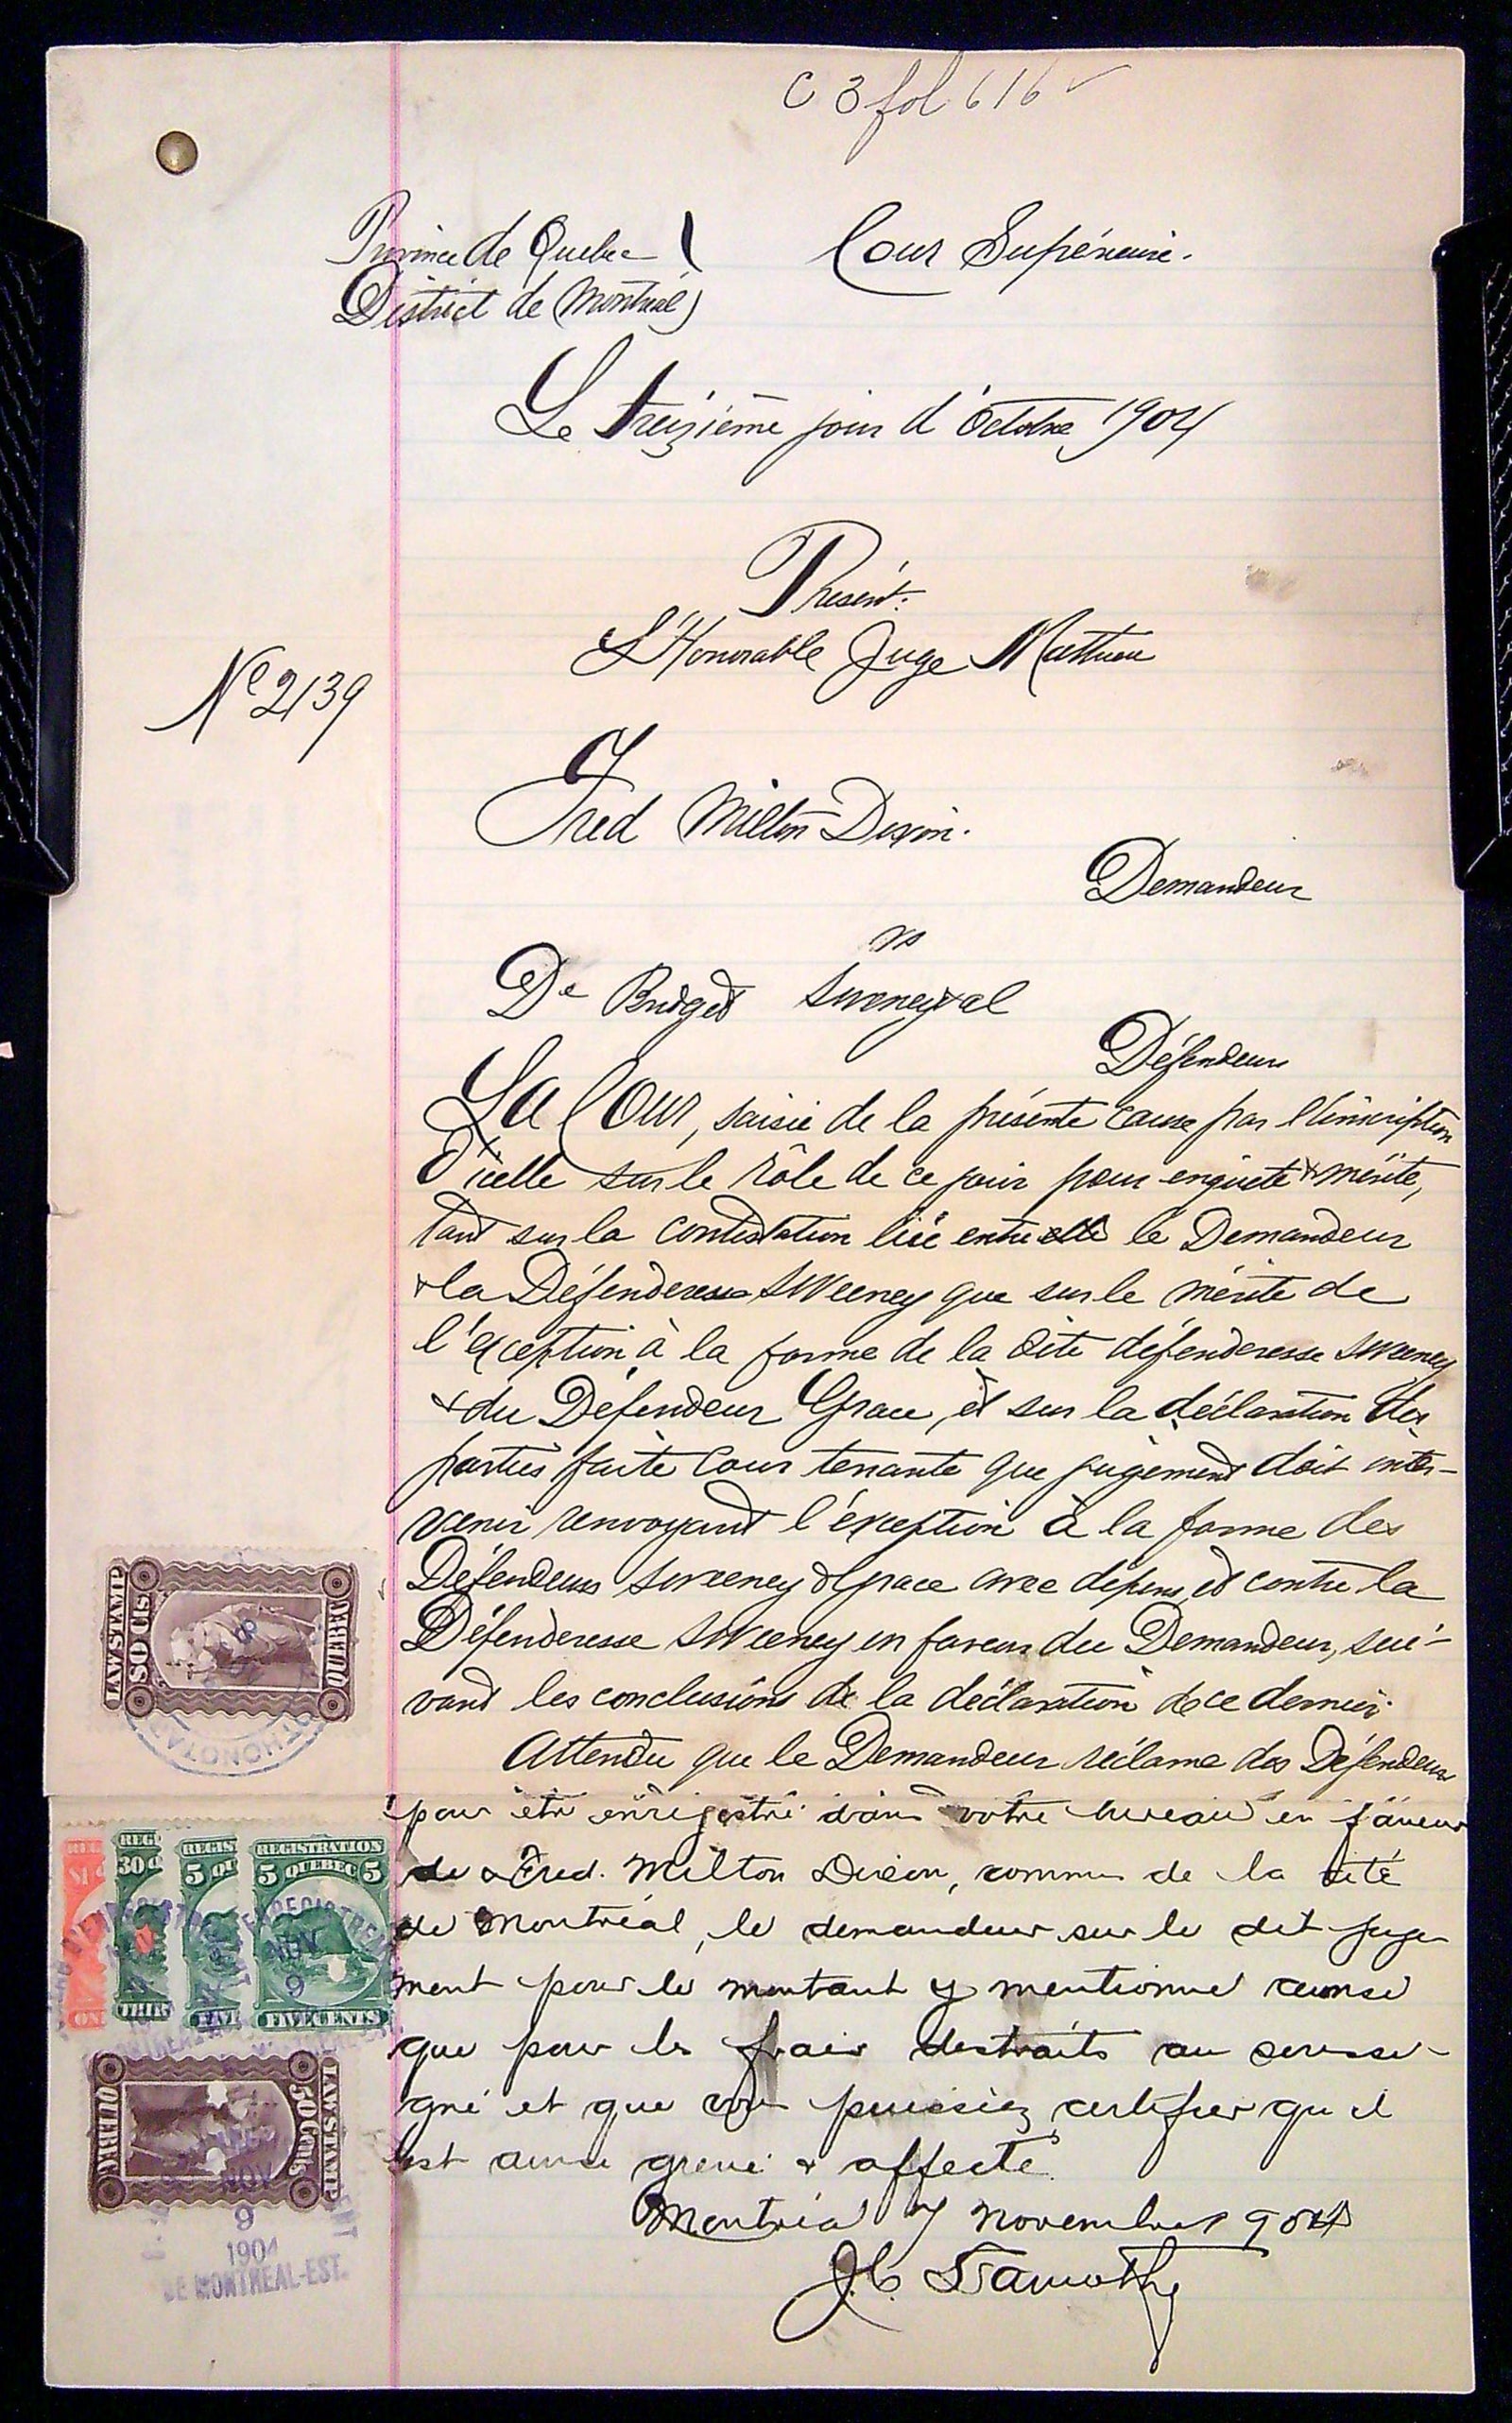 C 3 fol 616
Province de Quebec
Cour Supérieure.
District de Montréal
Le treizième jour d'Octobre 1904
Présent:
L'Honorable Juge Mathieu
No 2139
Fred Milton Dixon.
Demandeur
vs
De Bridget Sweeney & al
Défendeurs
La Cour, saisie de la présente cause par l'inscription
d'icelle sur le rôle de ce jour pour enquête & mérite,
tant sur la contestation liée entre le Demandeur
& la Défenderesse Sweeney que sur le mérite de
l'exception à la forme de la dite défenderesse Sweeney
& du Défendeur Grace, et sur la déclaration des
parties faite Cour tenante que jugement doit inter-
venir renvoyant l'exception à la forme des
Défendeurs Sweeney & Grace avec dépens et contre la
Défenderesse Sweeney en faveur du Demandeur, sui-
vant les conclusions de la déclaration de ce dernier.
Attendu que le Demandeur réclame des Défendeurs
pour être enregistré dans votre bureau en faveur
de Fred. Milton Dixon, comme de la cité
de Montréal, le demandeur sur le dit juge
ment pour le montant y mentionné
que pour les frais distraits au soussi-
gné et que vous puissiez certifier qu il
est ainsi grevé & affecté
Montréal 7 novembre 1904
J.C. Lamothe
LAW STAMP
50 Cts
QUEBEC
REG
30¢
THIR
REGIS
5 QU
FIVE
REGISTRATION
5 QUEBEC 5
FIVE CENTS
NOV
9
LAW STAMP
50 Cents
QUEBEC
NOV
9
1904
DE MONTREAL-EST.